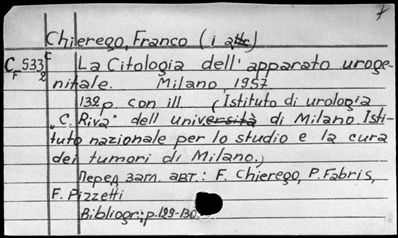 Chierego, Franco (i altr.)
C 533 c
F 2
La Citologia dell' apparato uroge-
nitale. Milano, 1957
132p. con ill (Istituto di urologia
„C. Riva" dell università di Milano Isti-
tuto nazionale per lo studio e la cura
dei tumori di Milano.)
Перед заг. авт.: F. Chierego, P. Fabris,
F. Pizzetti
Bibliogr.: p. 129-130.